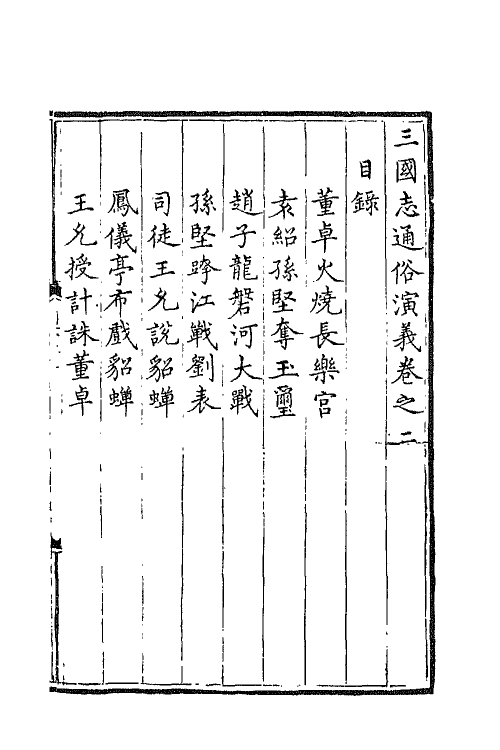 三國志通俗演義卷之二
目錄
董卓火燒長樂宮
袁紹孫堅奪玉璽
趙子龍磐河大戰
孫堅跨江戰劉表
司徒王允說貂蟬
鳳儀亭布戲貂蟬
王允授計誅董卓